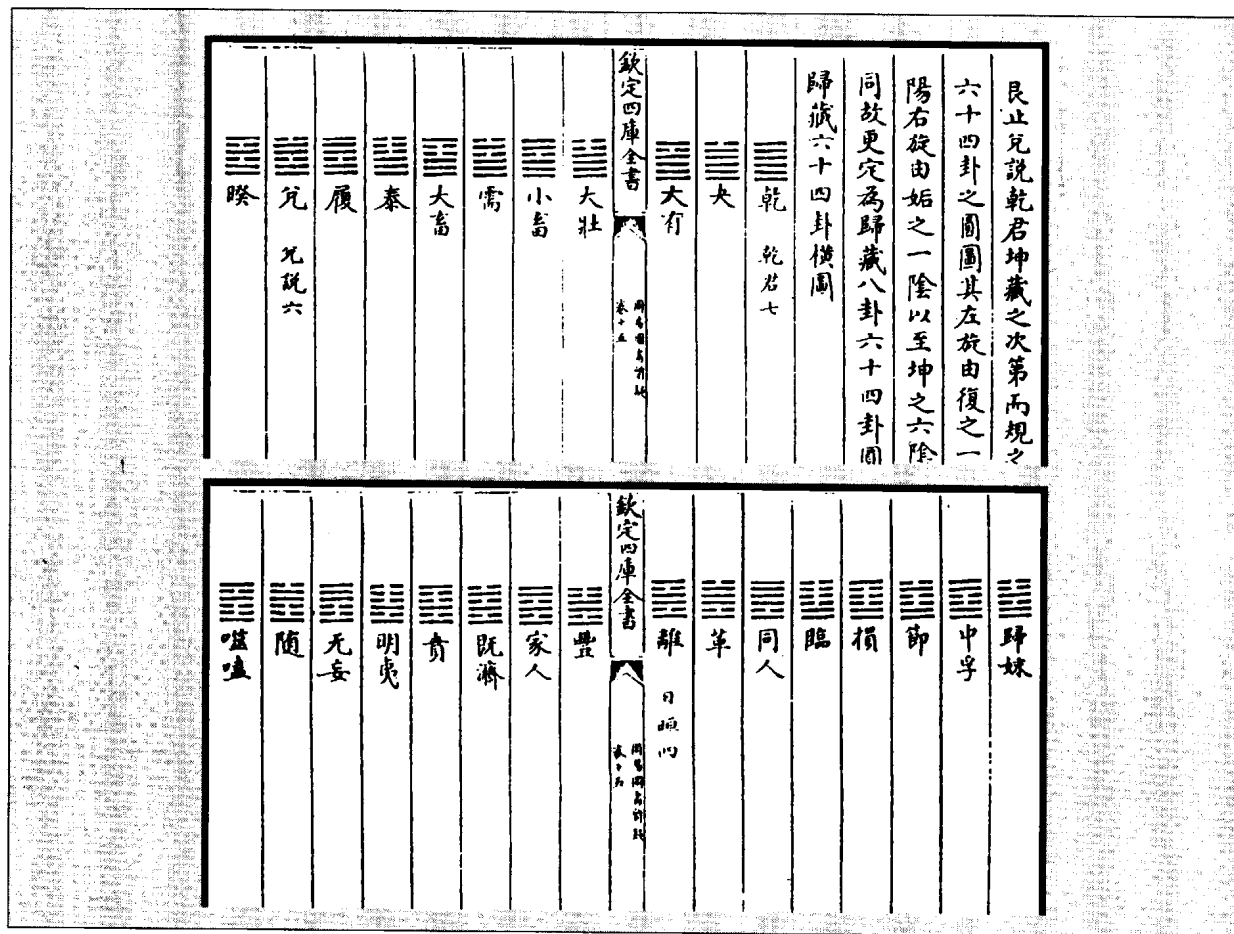 艮止兌說乾君坤藏之次第而規之
六十四卦之圓圖其左旋由復之一
陽右旋由姤之一陰以至坤之六陰
同故更定為歸藏八卦六十四卦圓
歸藏六十四卦橫圖
乾 乾君七
夬
大有
欽定四庫全書
卷十五
大壯
小畜
需
大畜
泰
履
兌 兌說六
睽
歸妹
中孚
節
損
臨
同人
革
離 日烜四
欽定四庫全書
卷十五
豐
家人
既濟
賁
明夷
无妄
随
噬嗑